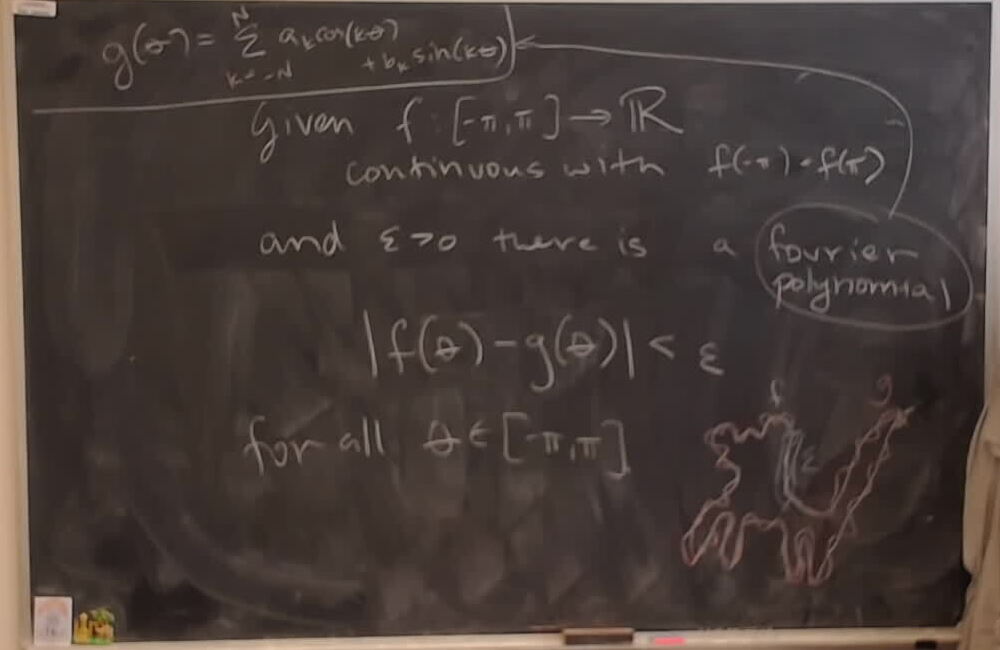 g(θ) = N∑k=-N aₖcos(kθ)
+ bₖ sin(kθ)
Given f : [-π,π] → ℝ
continuous with f(-π) = f(π)
and ε>0 there is a fourier
polynomial
|f(θ) - g(θ)| < ε
for all θ ∈ [-π,π]
f g
ε